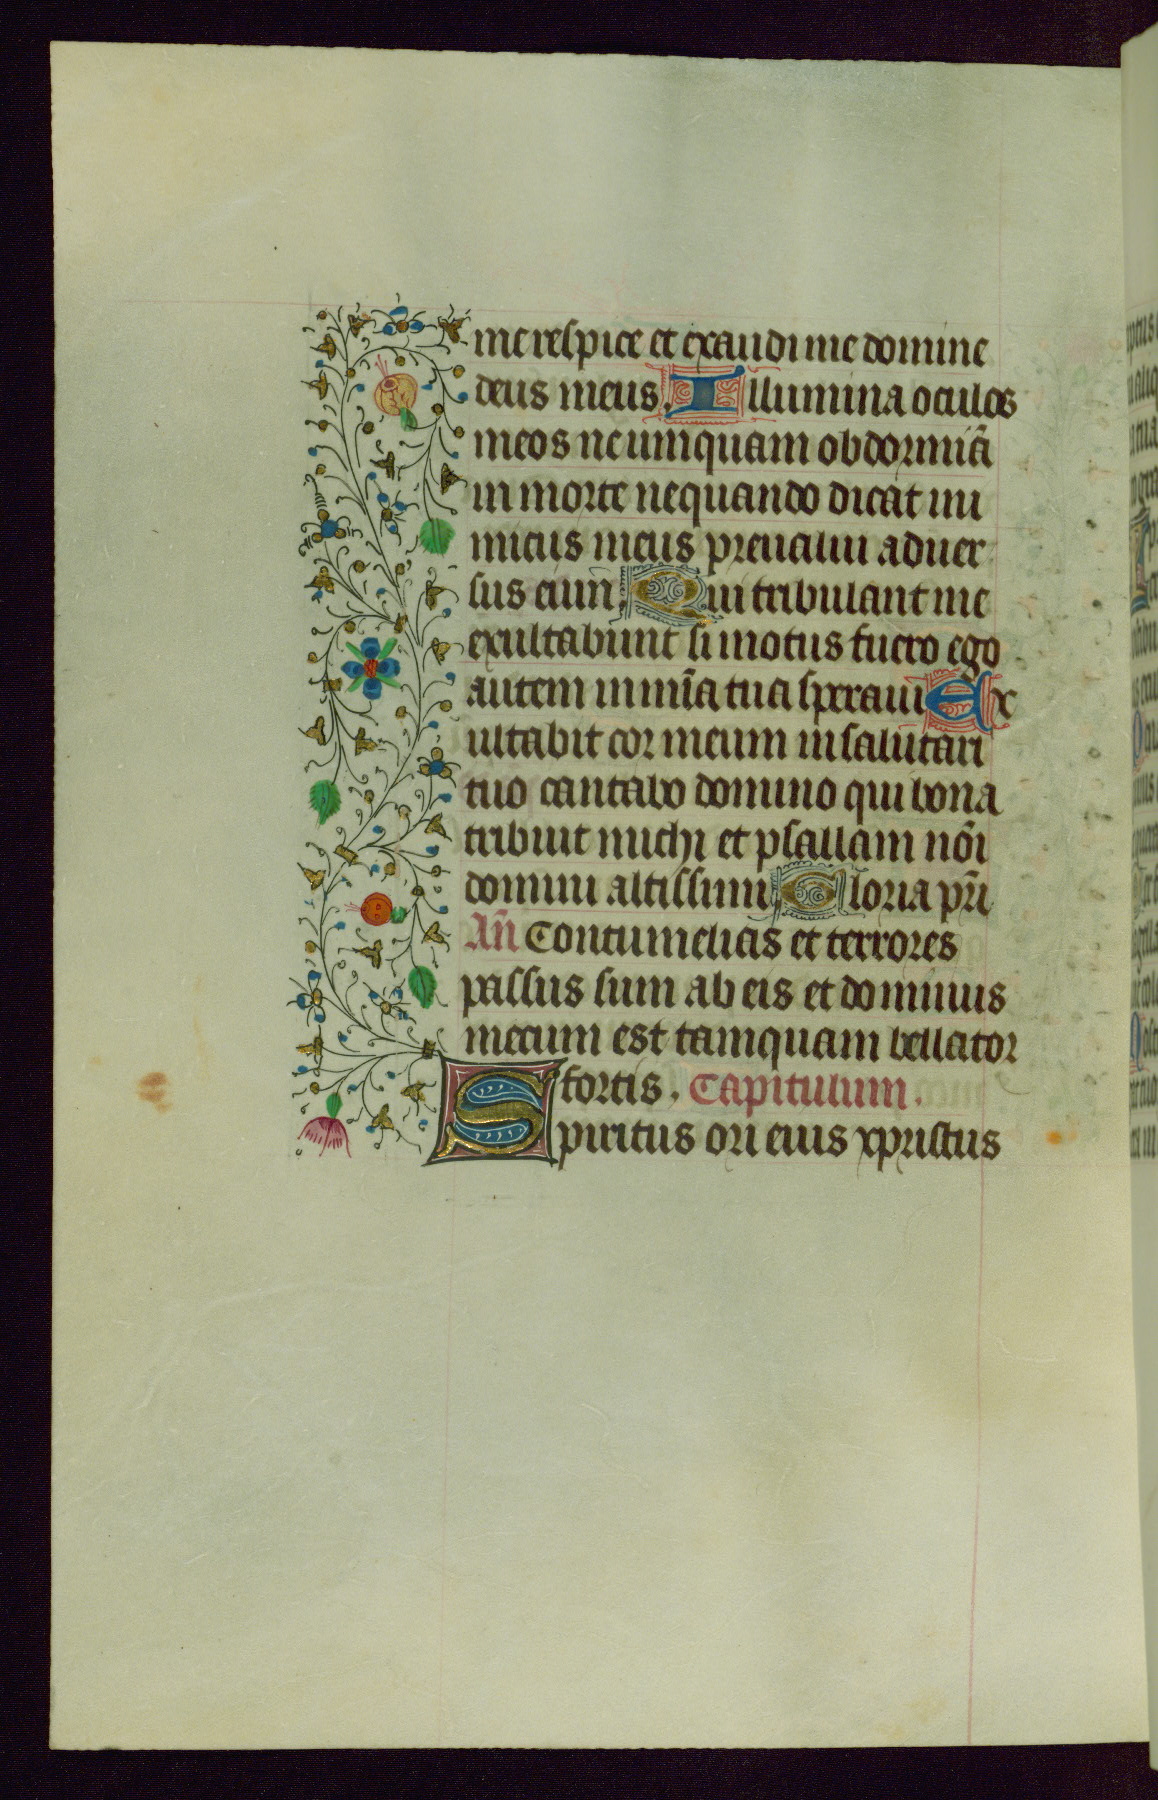 me respice et exaudi me domine
deus meus. Illumina oculos
meos ne umquam obdormiā
in morte nequando dicat ini
micus meus preualui aduer
sus eum̄. Qui tribulant me
exultabunt si motus fuero ego
autem in mīa tua speraui Ex
ultabit cor meum in salutari
tuo cantabo domino qui bona
tribuit michi et psallam nōi
domini altissimi Gloria pr̄i
An̄ Contumelias et terrores
passus sum ab eis et dominus
mecum est tamquam bellator
fortis. Capitulum.
Spiritus ori eius xpristus